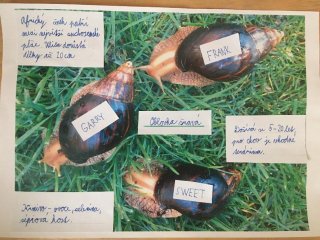 Africký šnek patří
mezi největší suchozemské
plže. Ulita dorůstá
délky až 20 cm
FRANK
GARRY
Oblovka žravá
Dožívá se 5-20 let,
pro chov je vhodné
terárium.
SWEET
Krmivo - ovoce, zelenina,
sépiová kost